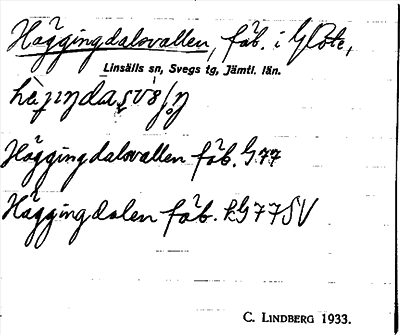 Häggingdalsvallen, fäb. i Glöte,
Linsälls sn, Svegs tg, Jämtl. län.
Häggingdalsvallen fäb. G 77
Häggingdalen fäb. G 77 SV
C. LINDBERG 1933.